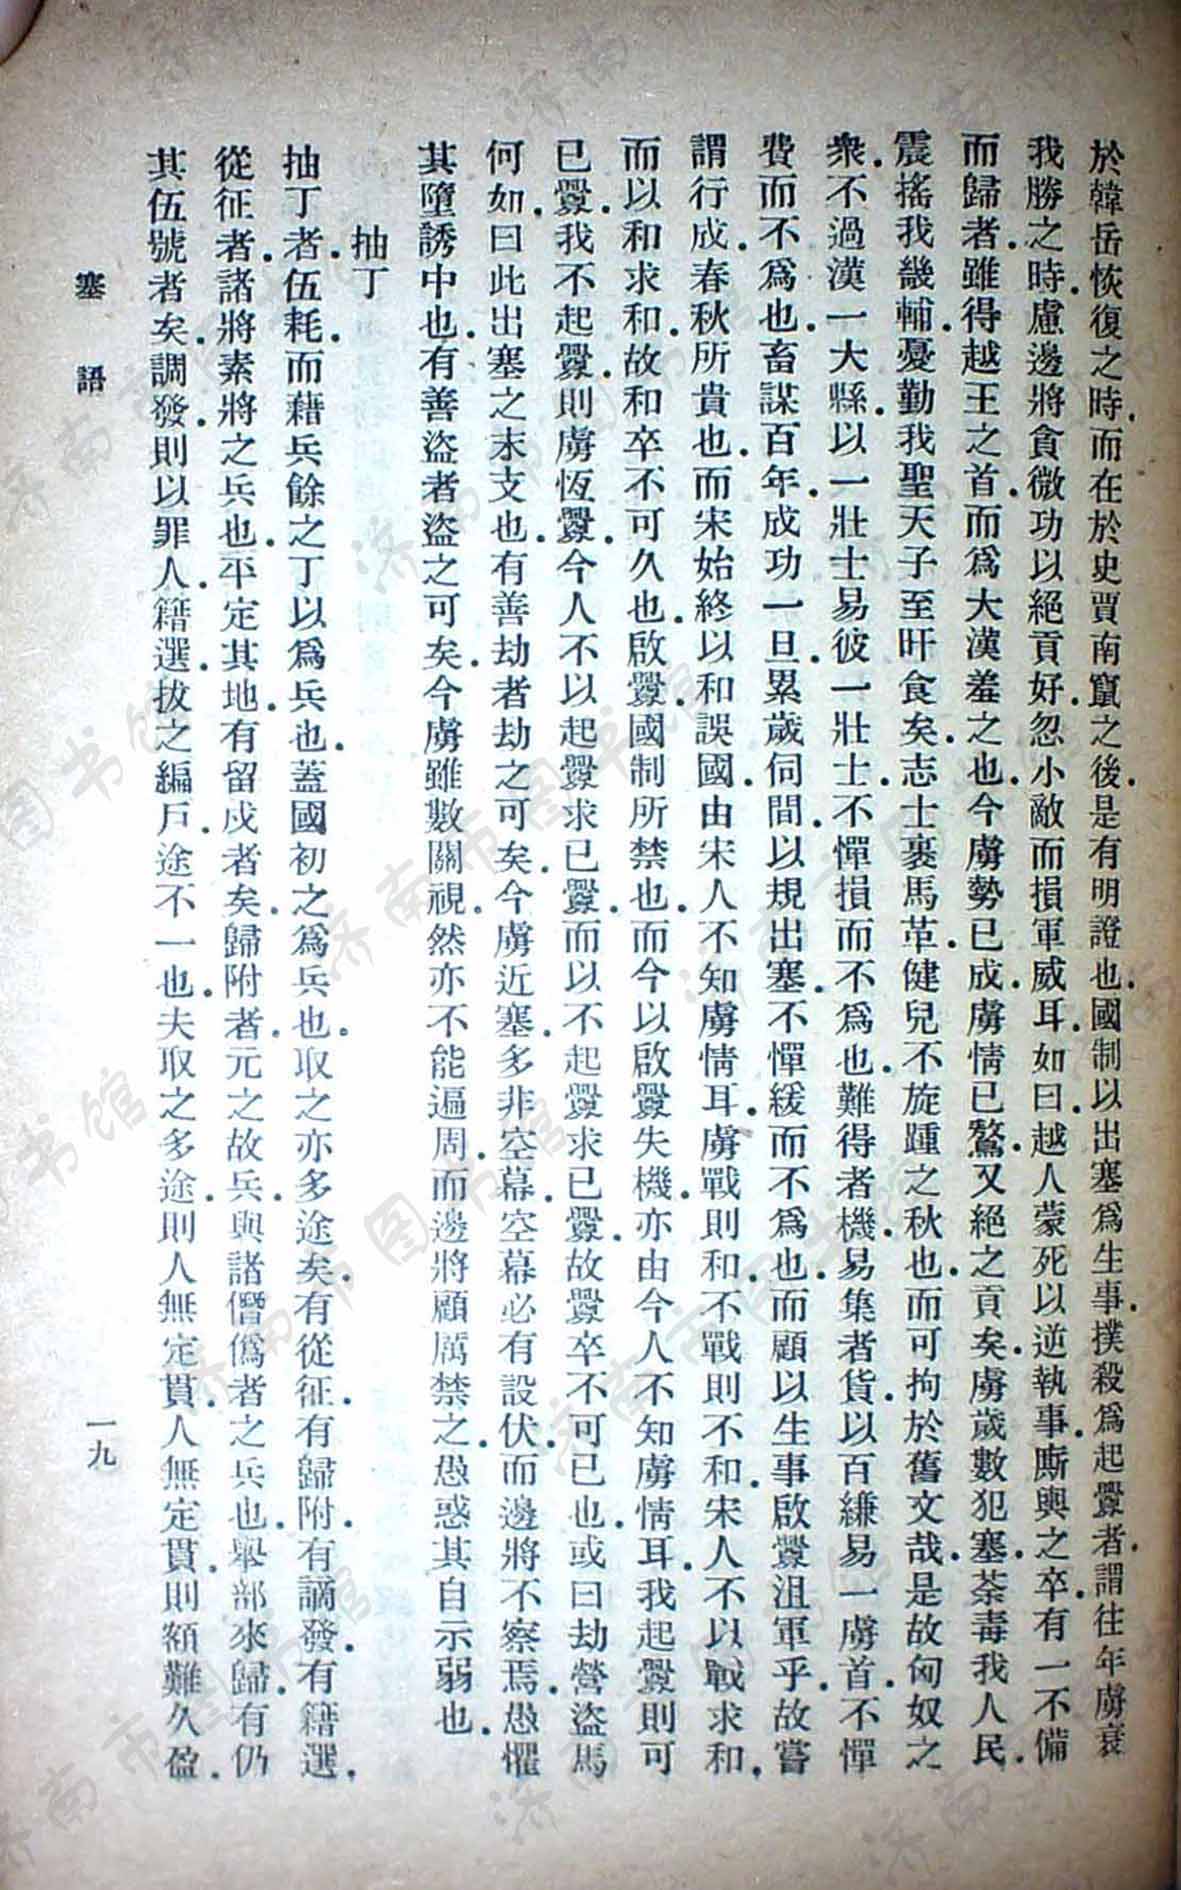 於韓岳恢復之時.而在於史賈南竄之後.是有明證也.國制以出塞爲生事.撲殺爲起釁者.謂往年虜衰
我勝之時.慮邊將貪微功以絕貢好.忽小敵而損軍威耳.如曰.越人蒙死以逆執事.厮輿之卒.有一不備
而歸者.雖得越王之首.而爲大漢羞之也.今虜勢已成.虜情已驁.又絕之貢矣.虜歲數犯塞.荼毒我人民.
震搖我畿輔.憂勤我聖天子至旰食矣.志士裹馬革.健兒不旋踵之秋也.而可拘於舊文哉.是故匈奴之
衆.不過漢一大縣.以一壯士易彼一壯士.不憚損而不爲也.難得者機.易集者貨.以百縑易一虜首.不憚
費而不爲也.畜謀百年.成功一旦.累歲伺間.以規出塞.不憚緩而不爲也.而顧以生事啟釁沮軍乎.故嘗
謂行成.春秋所貴也.而宋始終以和誤國.由宋人不知虜情耳.虜戰則和.不戰則不和.宋人不以戰求和.
而以和求和.故和卒不可久也.啟釁.國制所禁也.而今以啟釁失機.亦由今人不知虜情耳.我起釁則可
已釁.我不起釁.則虜恆釁.今人不以起釁求已釁.而以不起釁求已釁.故釁卒不可已也.或曰劫營盜馬
何如.曰此出塞之末支也.有善劫者劫之可矣.今虜近塞.多非空幕.空幕必有設伏.而邊將不察焉.愚懼
其墮誘中也.有善盜者盜之可矣.今虜雖數闌視.然亦不能遍周.而邊將顧厲禁之.愚惑其自示弱也.
抽丁
抽丁者.伍耗.而藉兵餘之丁以爲兵也.蓋國初之爲兵也。取之亦多途矣.有從征.有歸附.有謫發.有籍選.
從征者.諸將素將之兵也.平定其地.有留戍者矣.歸附者.元之故兵.與諸僭僞者之兵也.舉部來歸.有仍
其伍號者矣.調發.則以罪人.籍選.拔之編戶.途不一也.夫取之多途.則人無定貫.人無定貫.則額難久盈.
塞語
一九
济南市图书馆